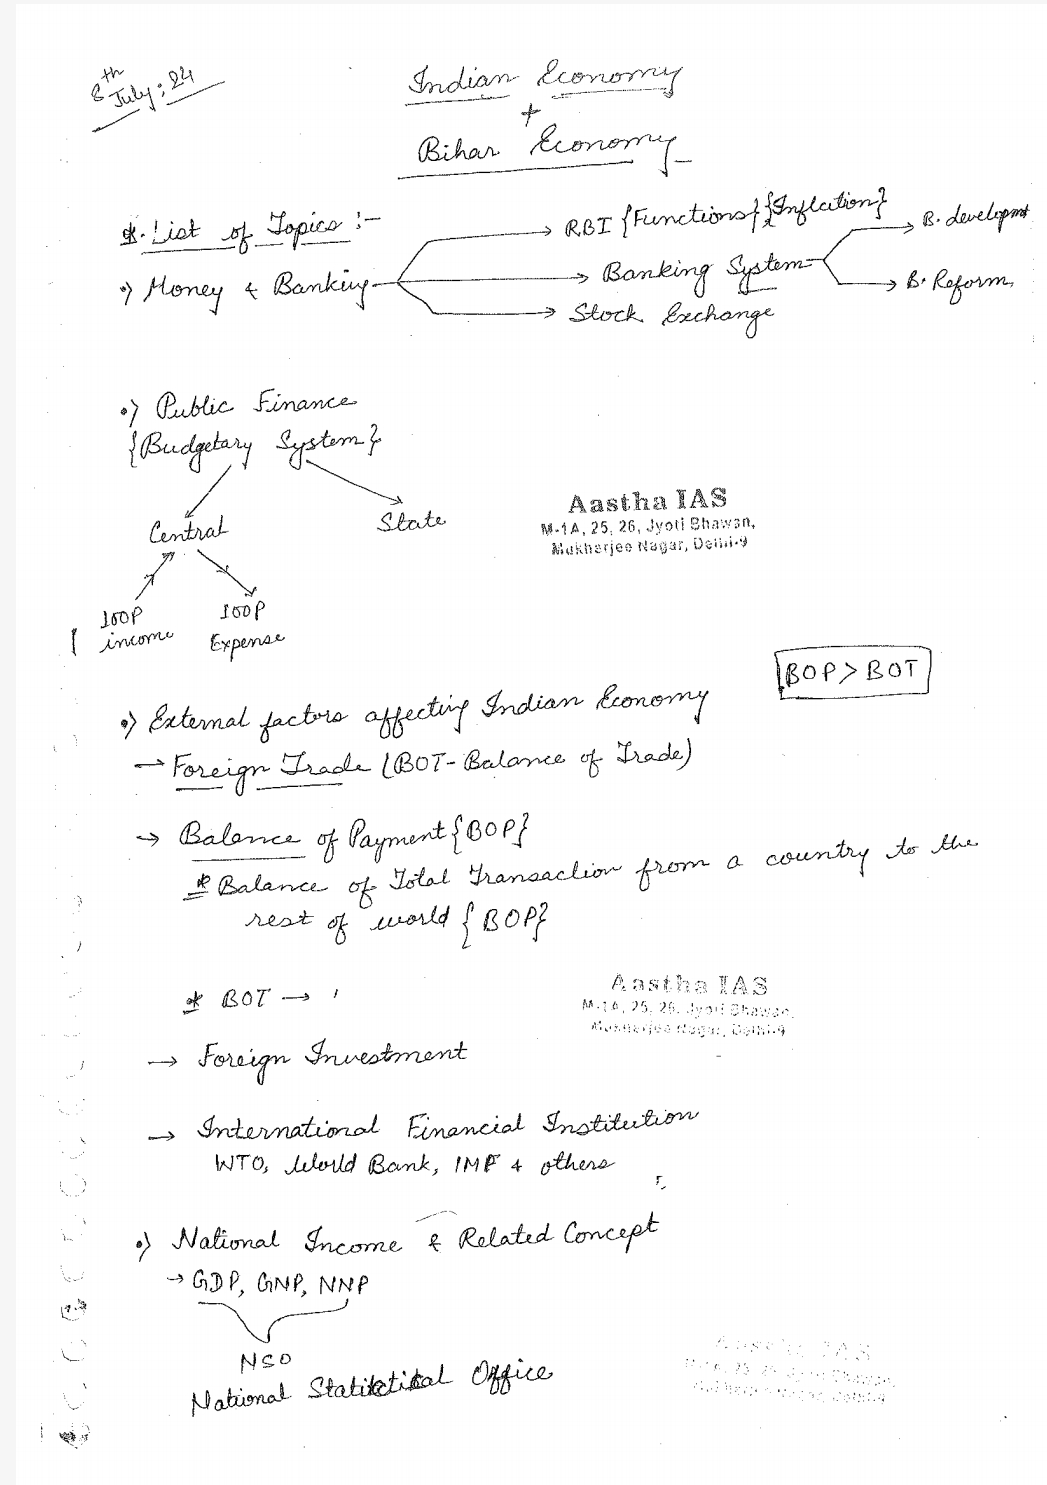 8th July: 24
Indian Economy
+
Bihar Economy
*. List of Topics :-
•) Money & Banking → RBI {Functions} {Inflation}
→ Banking System → B. developmt
→ B. Reform
→ Stock Exchange
•) Public Finance
{Budgetary System}
Central State
100P 100P
income Expense
Aastha IAS
M-1A, 25, 26, Jyoti Bhawan,
Mukherjee Nagar, Delhi-9
BOP > BOT
•) External factors affecting Indian Economy
→ Foreign Trade (BOT- Balance of Trade)
→ Balance of Payment {BOP}
* Balance of Total Transaction from a country to the
rest of world {BOP}
* BOT →
Aastha IAS
M-1A, 25, 26, Jyoti Bhawan,
Mukherjee Nagar, Delhi-9
→ Foreign Investment
→ International Financial Institution
WTO, World Bank, IMF & others
•) National Income & Related Concept
→ GDP, GNP, NNP
NSO
National Statistical Office
Aastha IAS